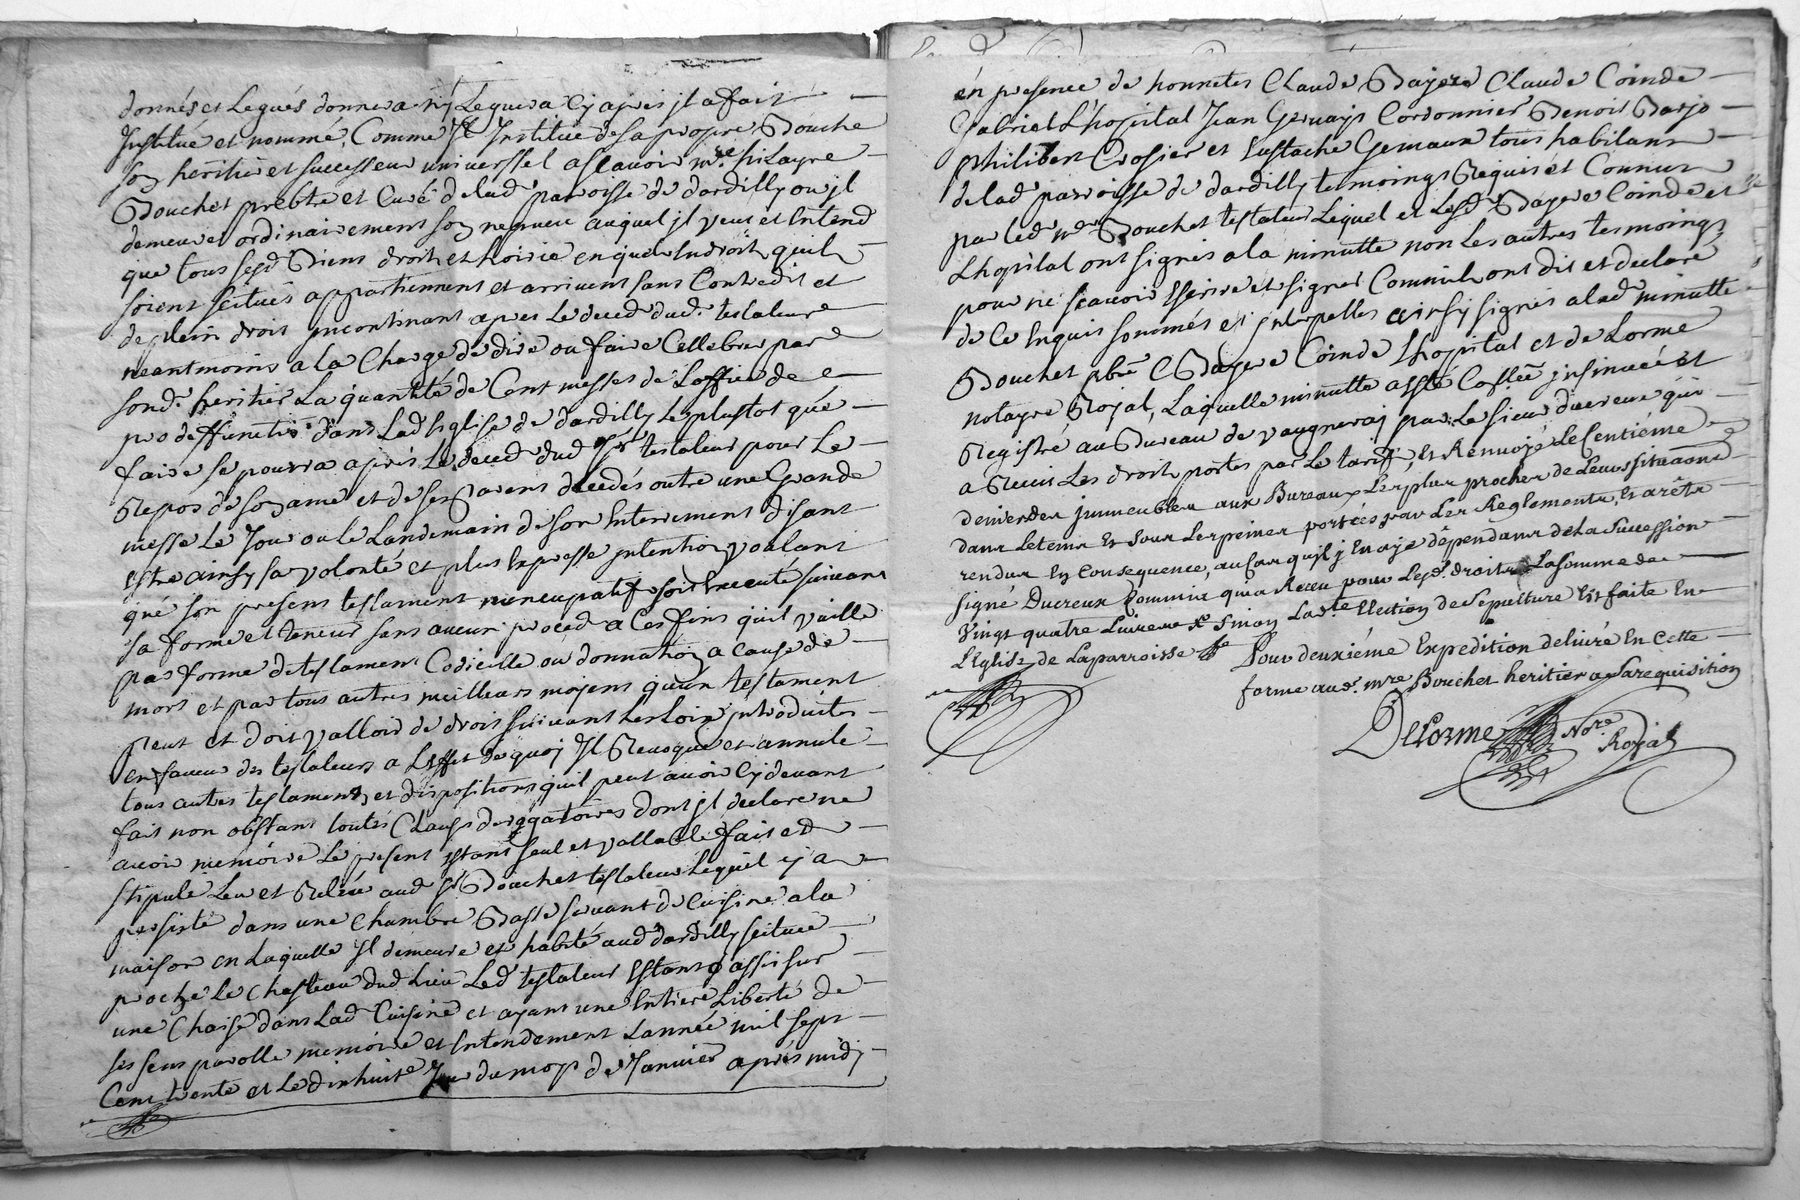 donnés et Legués donnera ny Leguera Cy apres jl a fait
Institué et nommé, Comme Il Institué de sa propre Bouche
son heritier et successeur universsel ascavoir mre hilayre
Bouchet prebtre et Curé de lad. parroisse de dardilly ou jl
demeure ordinairement son nepveu auquel jl veut et Entend
que tous sesd Biens droits et hoirie en quel Endroit quils
soient scitués appartiennent et arrivent sans Contredit et
de plein droit jncontinant apres Le deced dud. testateur
neantmoins a la Charge de dire ou faire Cellebrer par
sond. heritier La quantité de Cent messes de L'office de
pro deffunctis dans Lad Eglise de dardilly Le plustot que
faire se pourra apres Le deced dud Sr testateur pour Le
Repos de son ame et de ses parens decedés outre une Grande
messe Le Jour ou le Landemain de son Enterrement disant
Estre ainsy sa volonté et plus Expresse jntention voulant
que son present testament nuncupatif soit Execute suivant
sa forme et teneur sans aucun proced a Ces fins quil vaille
par forme de testament Codicille ou donnation a cause de
mort et par tous autres meilleurs moyens qu'un testament
peut et doit valloir de droit suivant Les Loix jntroduites
en faveur des testateurs a L'effet de quoj Il Revoque et annule
tous autres testaments et dispositions quil peut avoir Cy devant
fait non obstant toutes Clauses derogatoires dont jl declare ne
avoir memoire Le present Estant seul et vallable fait et
stipulé Leu et Releu aud Sr Bouchet testateur Lequel y a
persisté dans une Chambre Basse servant de Cuisine a la
maison en Laquelle Il demeure et habite aud dardilly scituée
proche Le Chasteau dud Lieu Led testateur Estant assis sur
une Chaise dans Lad Cuisine et ayant une Entiere Liberté de
ses sens parolle memoire et Entendement L'année mil sept
Cent trente et Le dixhuite Jour du moys de Janvier apres midj
en presence de honnetes Claude Bayere Claude Coinde
Gabriel L'hopital Jean Gervays Cordonnier Benoit Barjo
philibert Crosier et Eustache Gemaux tous habitans
de lad parroisse de dardilly tesmoings Requis et Connus
par led mre Bouchet testateur Lequel et Lesd Bayere Coinde et
Lhopital ont signés a la minutte non Les autres tesmoings
pour ne scavoir Escrire et signer Comm'ils ont dit et declaré
de Ce Enquis sommés et jnterpellés ainsy signés a lad minutte
Bouchet pbre C Bayere Coinde Lhopital et de Lorme
notayre Royal, Laquelle minutte a esté Collée jnsinuée et
Registré au Bureau de vaugneraj par Le sieur ducreux qui
a Receu Les droits portés par Le tarif, Et Renvoyé Le Centiéme
denier des jmmeubles aux Bureaux Les plus proches de Leurs situations
dans Le tems Et sous Les peines portées par Les Reglements, Et arêts
rendus En Consequence, au Cas quil j En aye dépendans de La Succession
signé Ducreux Commis qui a Receu pour Lesd. droits La somme de
Vingt quatre Livres Sinon La Ste Election de Sepulture Est faite En
L'Eglise de La parroisse
Pour deuxiéme Expedition delivré En Cette
forme aud. mre Bouchet heritier a Sa requisition
DeLorme Nore
Royal